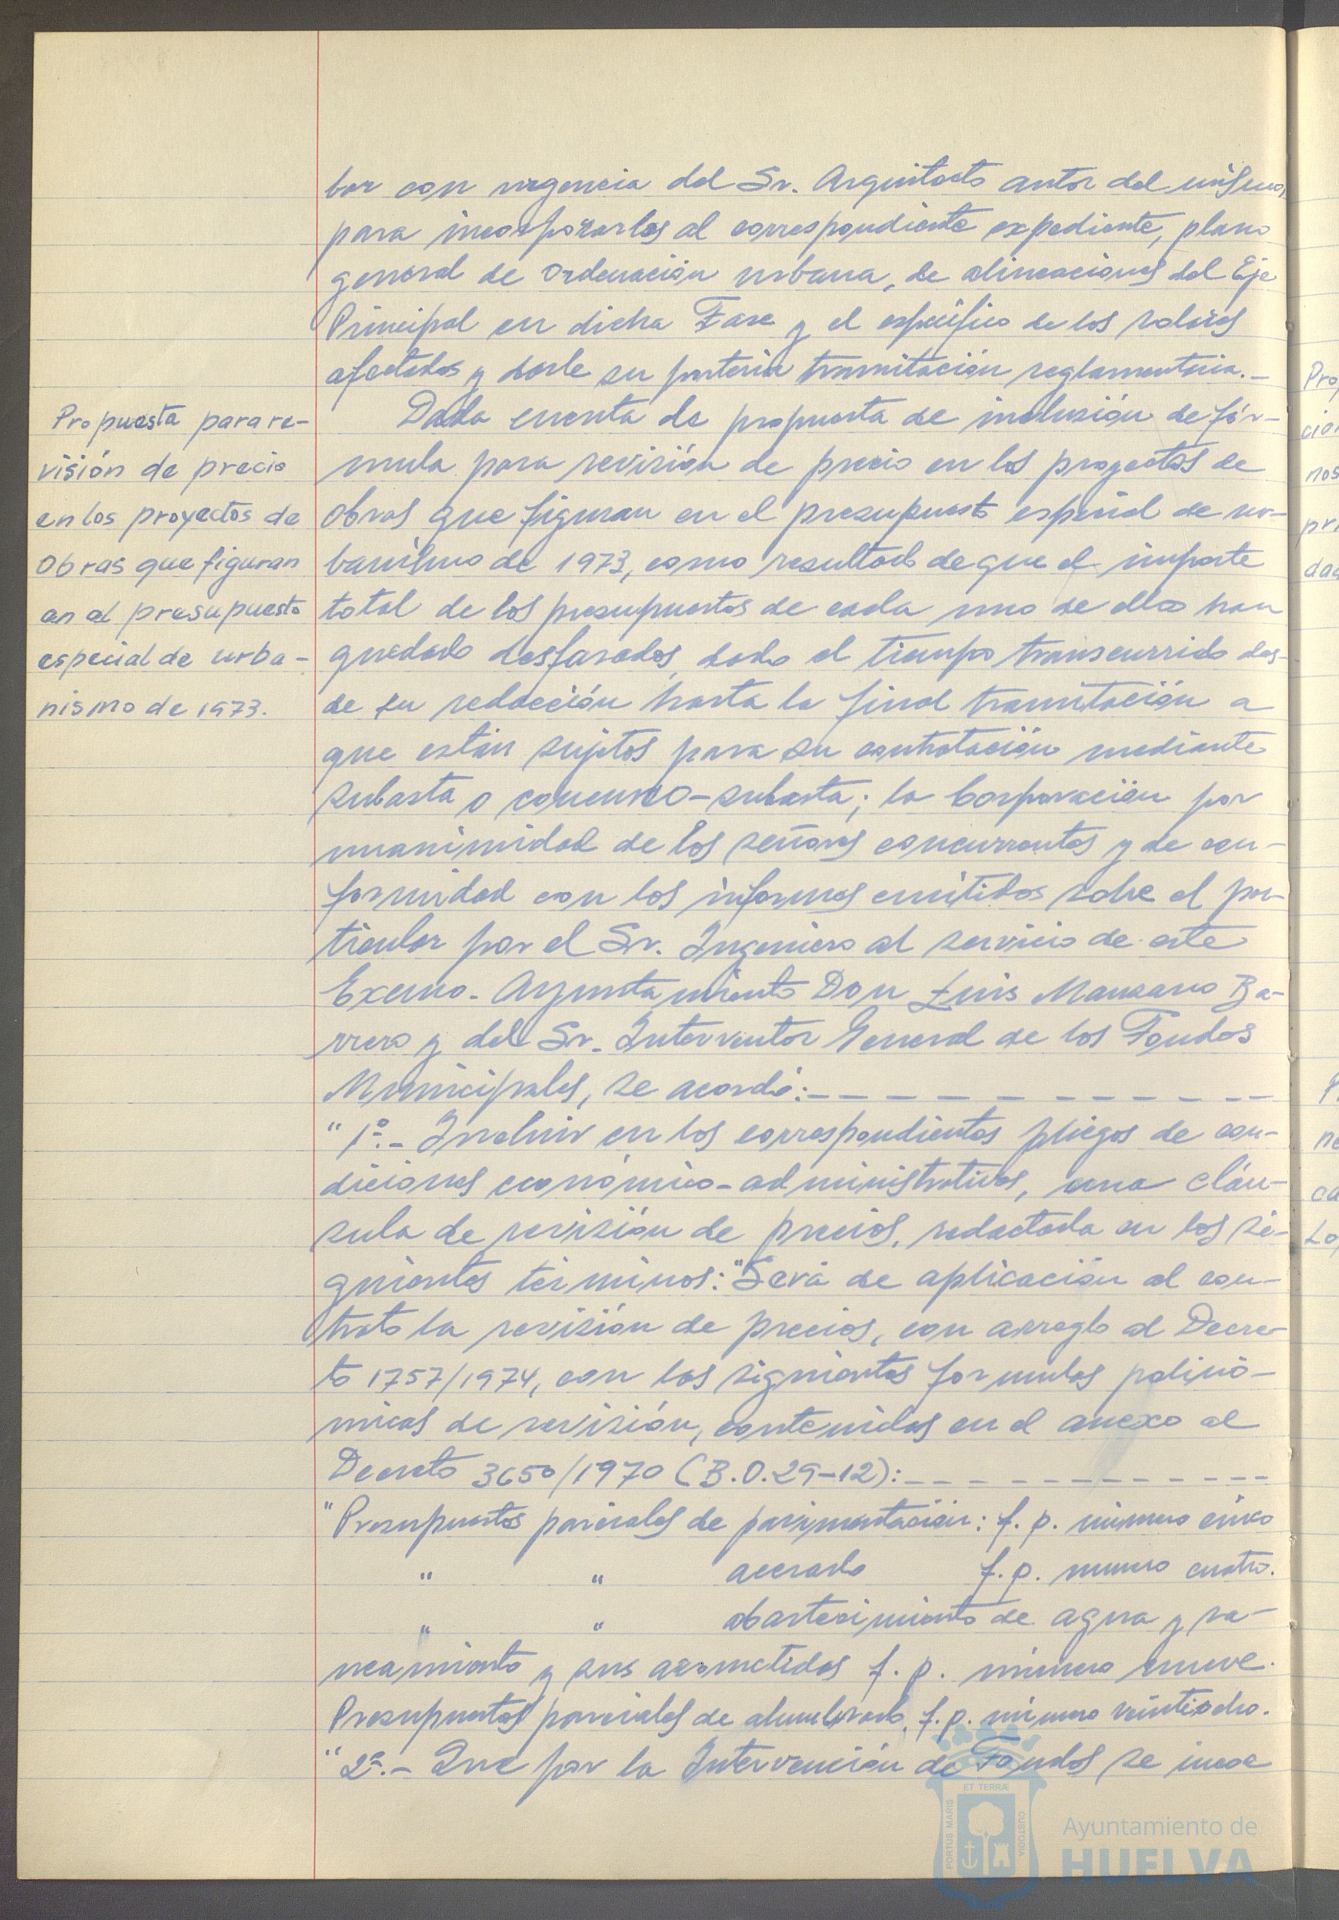 bar con urgencia del Sr. Arquitecto autor del mismo,
para incorporarlos al correspondiente expediente, plano
general de ordenación urbana, de alineaciones del Eje
Principal en dicha Fase y el específico de los solares
afectados y darle su posterior tramitación reglamentaria.-
Propuesta para re-
visión de precio
en los proyectos de
Obras que figuran
en el presupuesto
especial de urba-
nismo de 1973.
Dada cuenta de propuesta de inclusión de fór-
mula para revisión de precio en los proyectos de
Obras que figuran en el presupuesto especial de ur-
banismo de 1973, como resultado de que el importe
total de los presupuestos de cada uno de ellos han
quedado desfasados, dado el tiempo transcurrido des-
de su redacción hasta la final tramitación a
que están sujetos para su contratación mediante
subasta o concurso-subasta; la Corporación por
unanimidad de los señores concurrentes y de con-
formidad con los informes emitidos sobre el par-
ticular por el Sr. Ingeniero al servicio de este
Excmo. Ayuntamiento Don Luis Manzano Ba-
rrero y del Sr. Interventor General de los Fondos
Municipales, se acordó:- - - - - - - - - - - -
"1º.- Incluir en los correspondientes pliegos de con-
diciones económico-administrativas, una cláu-
sula de revisión de precios, redactada en los si-
guientes términos: "Será de aplicación al con-
trato la revisión de precios, con arreglo al Decre-
to 1757/1974, con las siguientes formulas polinó-
micas de revisión, contenidas en el anexo al
Decreto 3650/1970 (B.O.29-12):- - - - - - - - - - - -
"Presupuestos parciales de pavimentación: f. p. número cinco
" " acerado f. p. numero cuatro.
" " abastecimiento de agua y sa-
neamiento y sus acometidas f. p. número nueve.
Presupuestos parciales de alumbrado, f. p. número veintiocho.
"2º.- Que por la Intervención de Fondos se incoe
PORTUS MARIS
ET TERRÆ
CUSTODIA
Ayuntamiento de
HUELVA